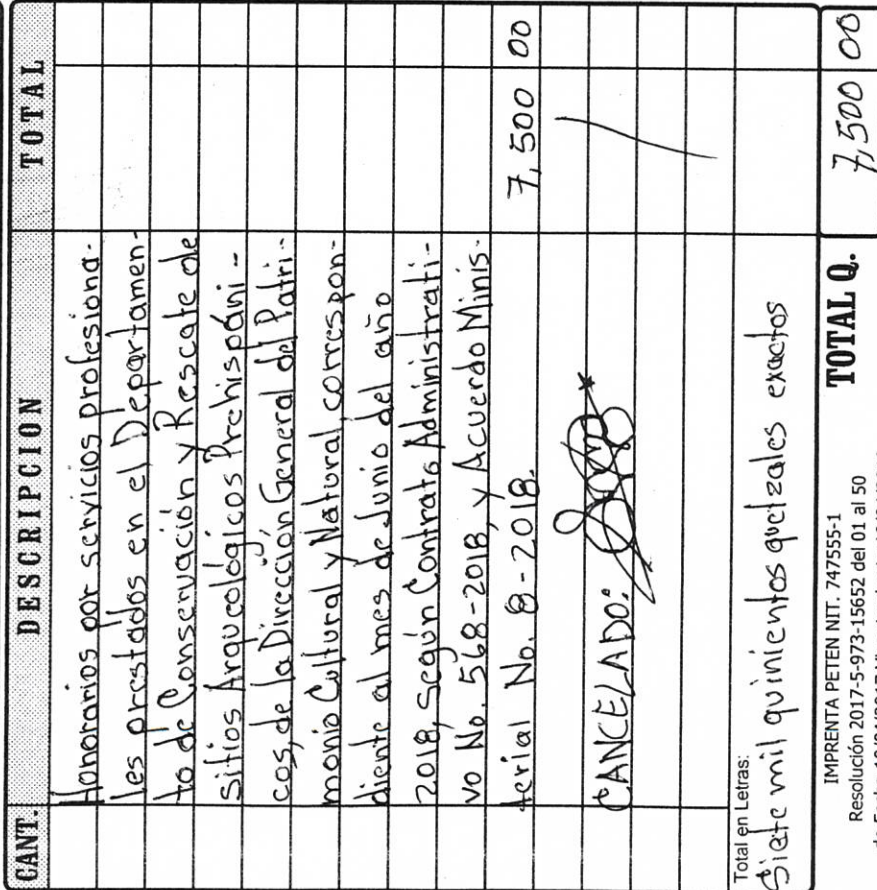 CANT. DESCRIPCION TOTAL
Honorarios por servicios profesiona-
les prestados en el Departamen-
to de Conservación y Rescate de
Sitios Arqueológicos Prehispáni-
cos, de la Dirección General del Patri-
monio Cultural y Natural correspon-
diente al mes de Junio del año
2018, según Contrato Administrati-
vo No. 568-2018, y Acuerdo Minis-
terial No. 8-2018. 7,500 00
CANCELADO:
Total en Letras:
Siete mil quinientos quetzales exactos
TOTAL Q. 7,500 00
IMPRENTA PETEN NIT. 747555-1
Resolución 2017-5-973-15652 del 01 al 50